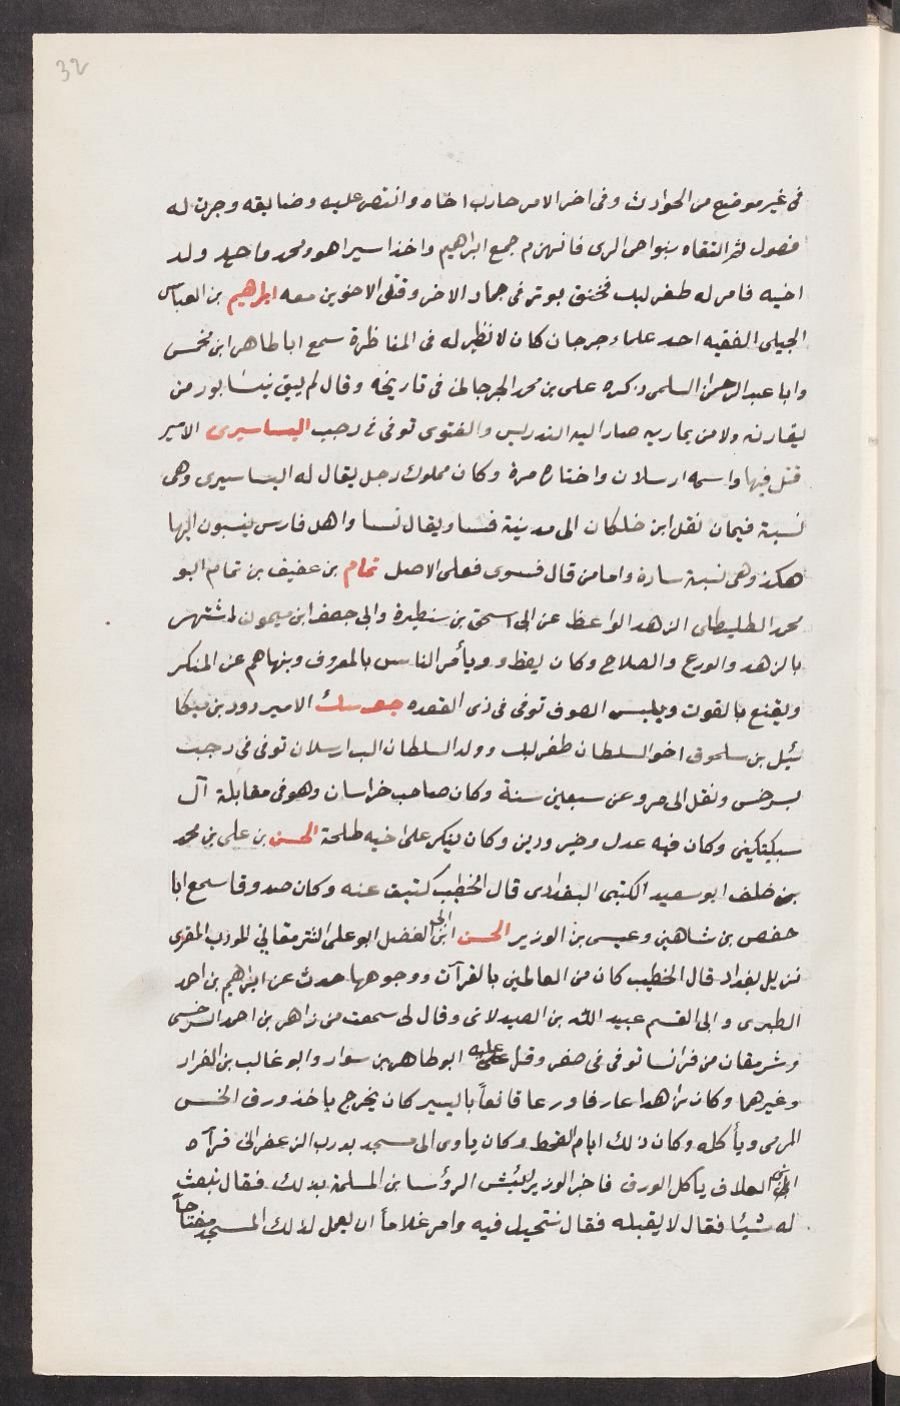 32
فى غير موضع من الحوادث وفى اخر الامر حارب اخاه وانتصر عليه وضايقه وجرت له
فصول ثم التقاه بنواحى الرى فانهزم جمع ابراهيم واخذ اسيرا هو ومحمد واحمد ولد
اخيه فامر له طغرلبك فخنق بوتر فى جماد الاخر وقتل الاخوين معه ابراهيم بن العباس
الجيلى الفقيه احد علماء جرجان كان لا نظير له فى المناظرة سمع ابا طاهر ابن محمس
وابا عبد الرحمن السلمى ذكره على بن محمد الجرجانى فى تاريخه وقال لم يبق بنيسابور من
يقارنه ولا من يماريه صار اليه التدريس والفتوى توفى فى رجب البساسيرى الامير
قتل فيها واسمه ارسلان واختاره مرة وكان مملوك رجل يقال له البساسيرى وهى
نسبة فيمان نقل ابن خلكان الى مدينة فسا ويقال نسا واهل فارس ينسبون اليها
هكذ وهى نسبة سادة واما من قال فسوى فعلى الاصل تمام بن عفيف بن تمام ابو
محمد الطليطلى الزهد الواعظ عن ابى اسحق بن شنطيرة وابى جعفر ابن ميمون اشتهر
بالزهد والورع والصلاح وكان يعظ و ويأمر الناس بالمعروف وينهاهم عن المنكر
ويقنع بالقوت ويلبس الصوف توفى فى ذى القعده الامير دود بن ميكا
ئيل بن سلحوق اخو السلطان طغرلبك وولد السلطان الب ارسلان توفى فى رجب
بسرخس ونقل الى مرو عن سبعين سنة وكان صاحب خراسان وهو فى مقابلة آل
سبكتكينى وكان فيه عدل وخير ودين وكان ينكر على اخيه طلحة الحسن بن على بن محمد
بن خلف ابو سعيد الكتبى البغدادى قال الخطيب كتبت عنه وكان صدوقا سمع ابا
حفص بن شاهين وعيسى بن الوزير الحسن ابن ابى الفضل ابو على الشرمقانى المودب المقرى
نزيل بغداد قال الخطيب كان من العالمين بالقرآت ووجوهها حدث عن ابراهيم بن احمد
الطبرى وابى القسم عبيد الله بن الصيدلانى وقال لى سمعت من زاهر بن احمد السرخسى
وشرمقان من قرا نسا توفى فى صفر وقرا عليه ابو طاهر بن سوار وابو غالب بن القزار
وغيرهما وكان زاهدا عارفا ورعا قانعاً باليسير كان يخرج ياخذ ورق الخس
المرمى ويأكله وكان ذلك ايام القحط وكان ياوى الى مسجد بدرب الزعفرانى فرآه
ابن العلاف ياكل الورق فاخبر الوزير رئيس الرؤسا بن المسلمة بذلك فقال نبعث
له شيئا فقال لا يقبله فقال نتحيل فيه وامر غلاماً ان يعمل لذلك المسجد مفتاحاً